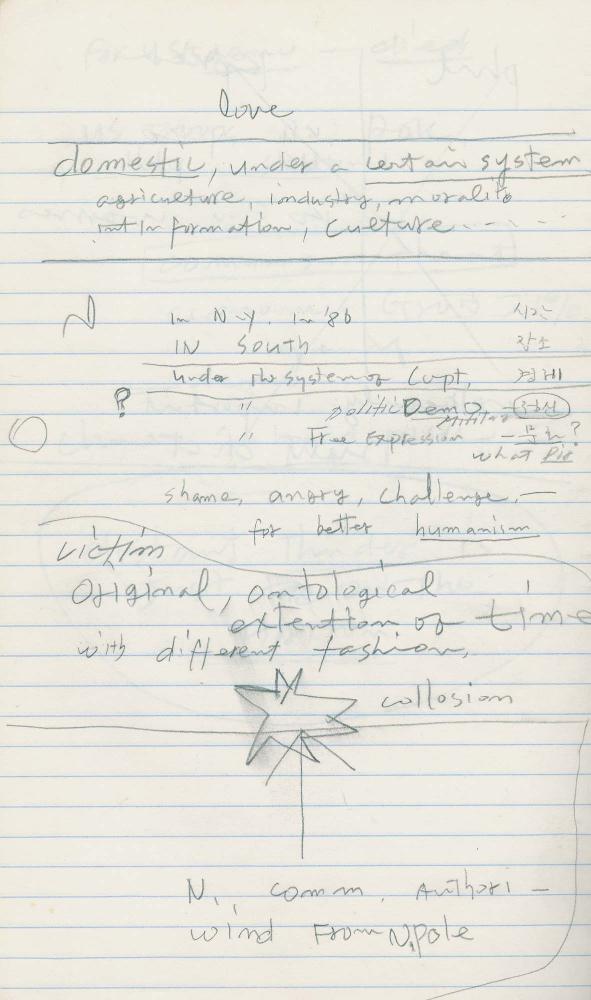 love
domestic, under a certain system
agriculture, industry, morality
information, culture.....
N in N.Y. in '86 시간
IN South 장소
under the system of Cupt, 경제
? " politic Demo Military 정신
" Free Expression ?
what
shame, angry, challenge, —
for better humanism
victim
Original, ontological
extention of time
with different fashion,
N
collosion
N, comm. Authori —
wind From N, pole